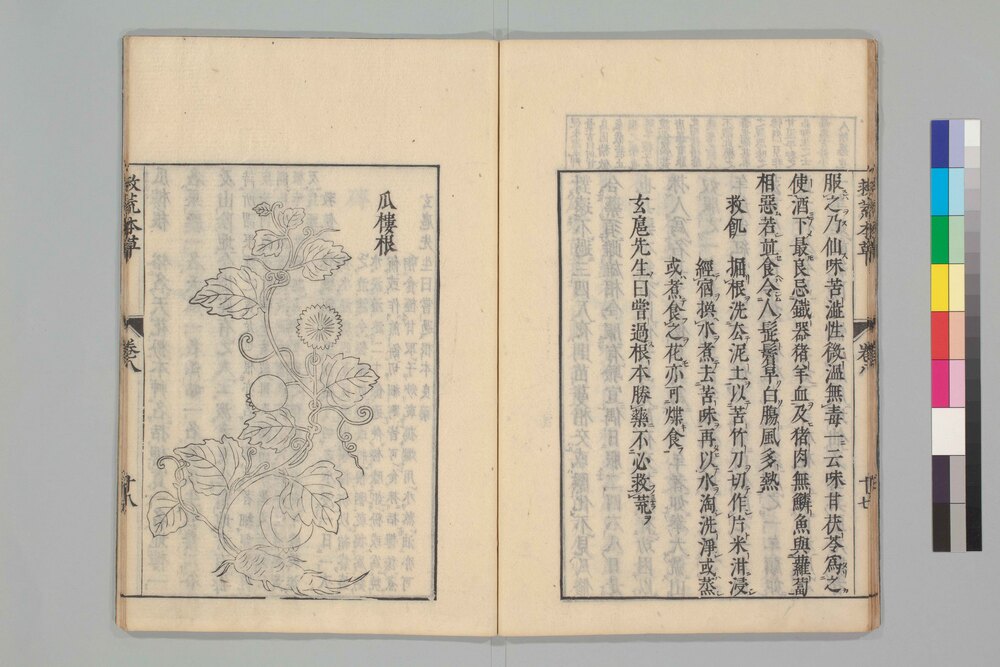 服之乃仙味苦澁性微温無毒一云味甘茯苓爲之
使酒下最良忌鐵器猪羊血及猪肉無鱗魚與蘿蔔
相惡若並食令人髭鬢早白腸風多熱
救飢
掘根洗去泥土以苦竹刀切作片米泔浸
經宿換水煮去苦味再以水淘洗淨或蒸
或煮食之花亦可煠食
玄扈先生曰嘗過根本勝藥不必救荒
救荒本草
卷八
十七
瓜樓根
救荒本草
卷八
十八